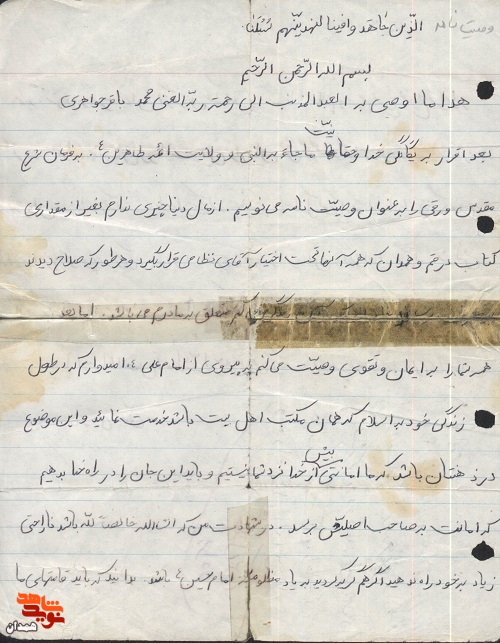 وصیت نامه الذین جاهدوا فینا لنهدینهم سبلنا
بسم الله الرحمن الرحیم
هذا ما اوصی به العبد المذنب الی رحمة ربه الغنی محمد باقر جواهری
بعد اقرار به یگانگی خدا و حقانیت ما جاء به النبی و ولایت ائمه طاهرین ع. به فرمان شرع
مقدس ورقی را به عنوان وصیت نامه می نویسم. از مال دنیا چیزی ندارم بغیر از مقداری
کتاب در قم و همدان که همه آنها تحت اختیار آقای نظامی قرار بگیرد و هر طور که صلاح دیدند
متعلق به مادرم می باشد. اما بعد
همه شما را به ایمان و تقوی وصیت می کنم به پیروی از امام علی ع. امیدوارم که در طول
زندگی خود به اسلام که همان مکتب اهل بیت باشد خدمت نمائید و این موضوع
در ذهنتان باشد که ما امانتی بیش از خدا نزد شما نیستیم و باید این جان را در راه خدا بدهیم
که امانت به صاحب اصلیش برسد. در شهادت من که انشاالله خالصا لله باشد ناراحتی
زیاد به خود راه ندهید اگر هم گریه کردید به یاد امام حسین ع باشد. بدانید که باید قامتهای ما
نوید شاهد
همدان